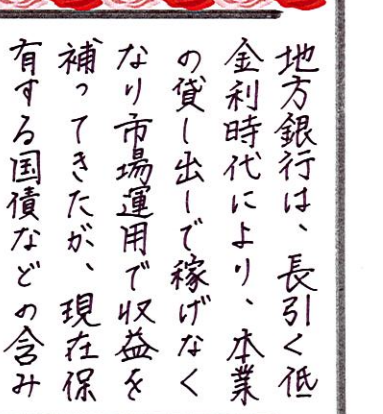 地方銀行は、長引く低
金利時代により、本業
の貸し出しで稼げなく
なり市場運用で収益を
補ってきたが、現在保
有する国債などの含み